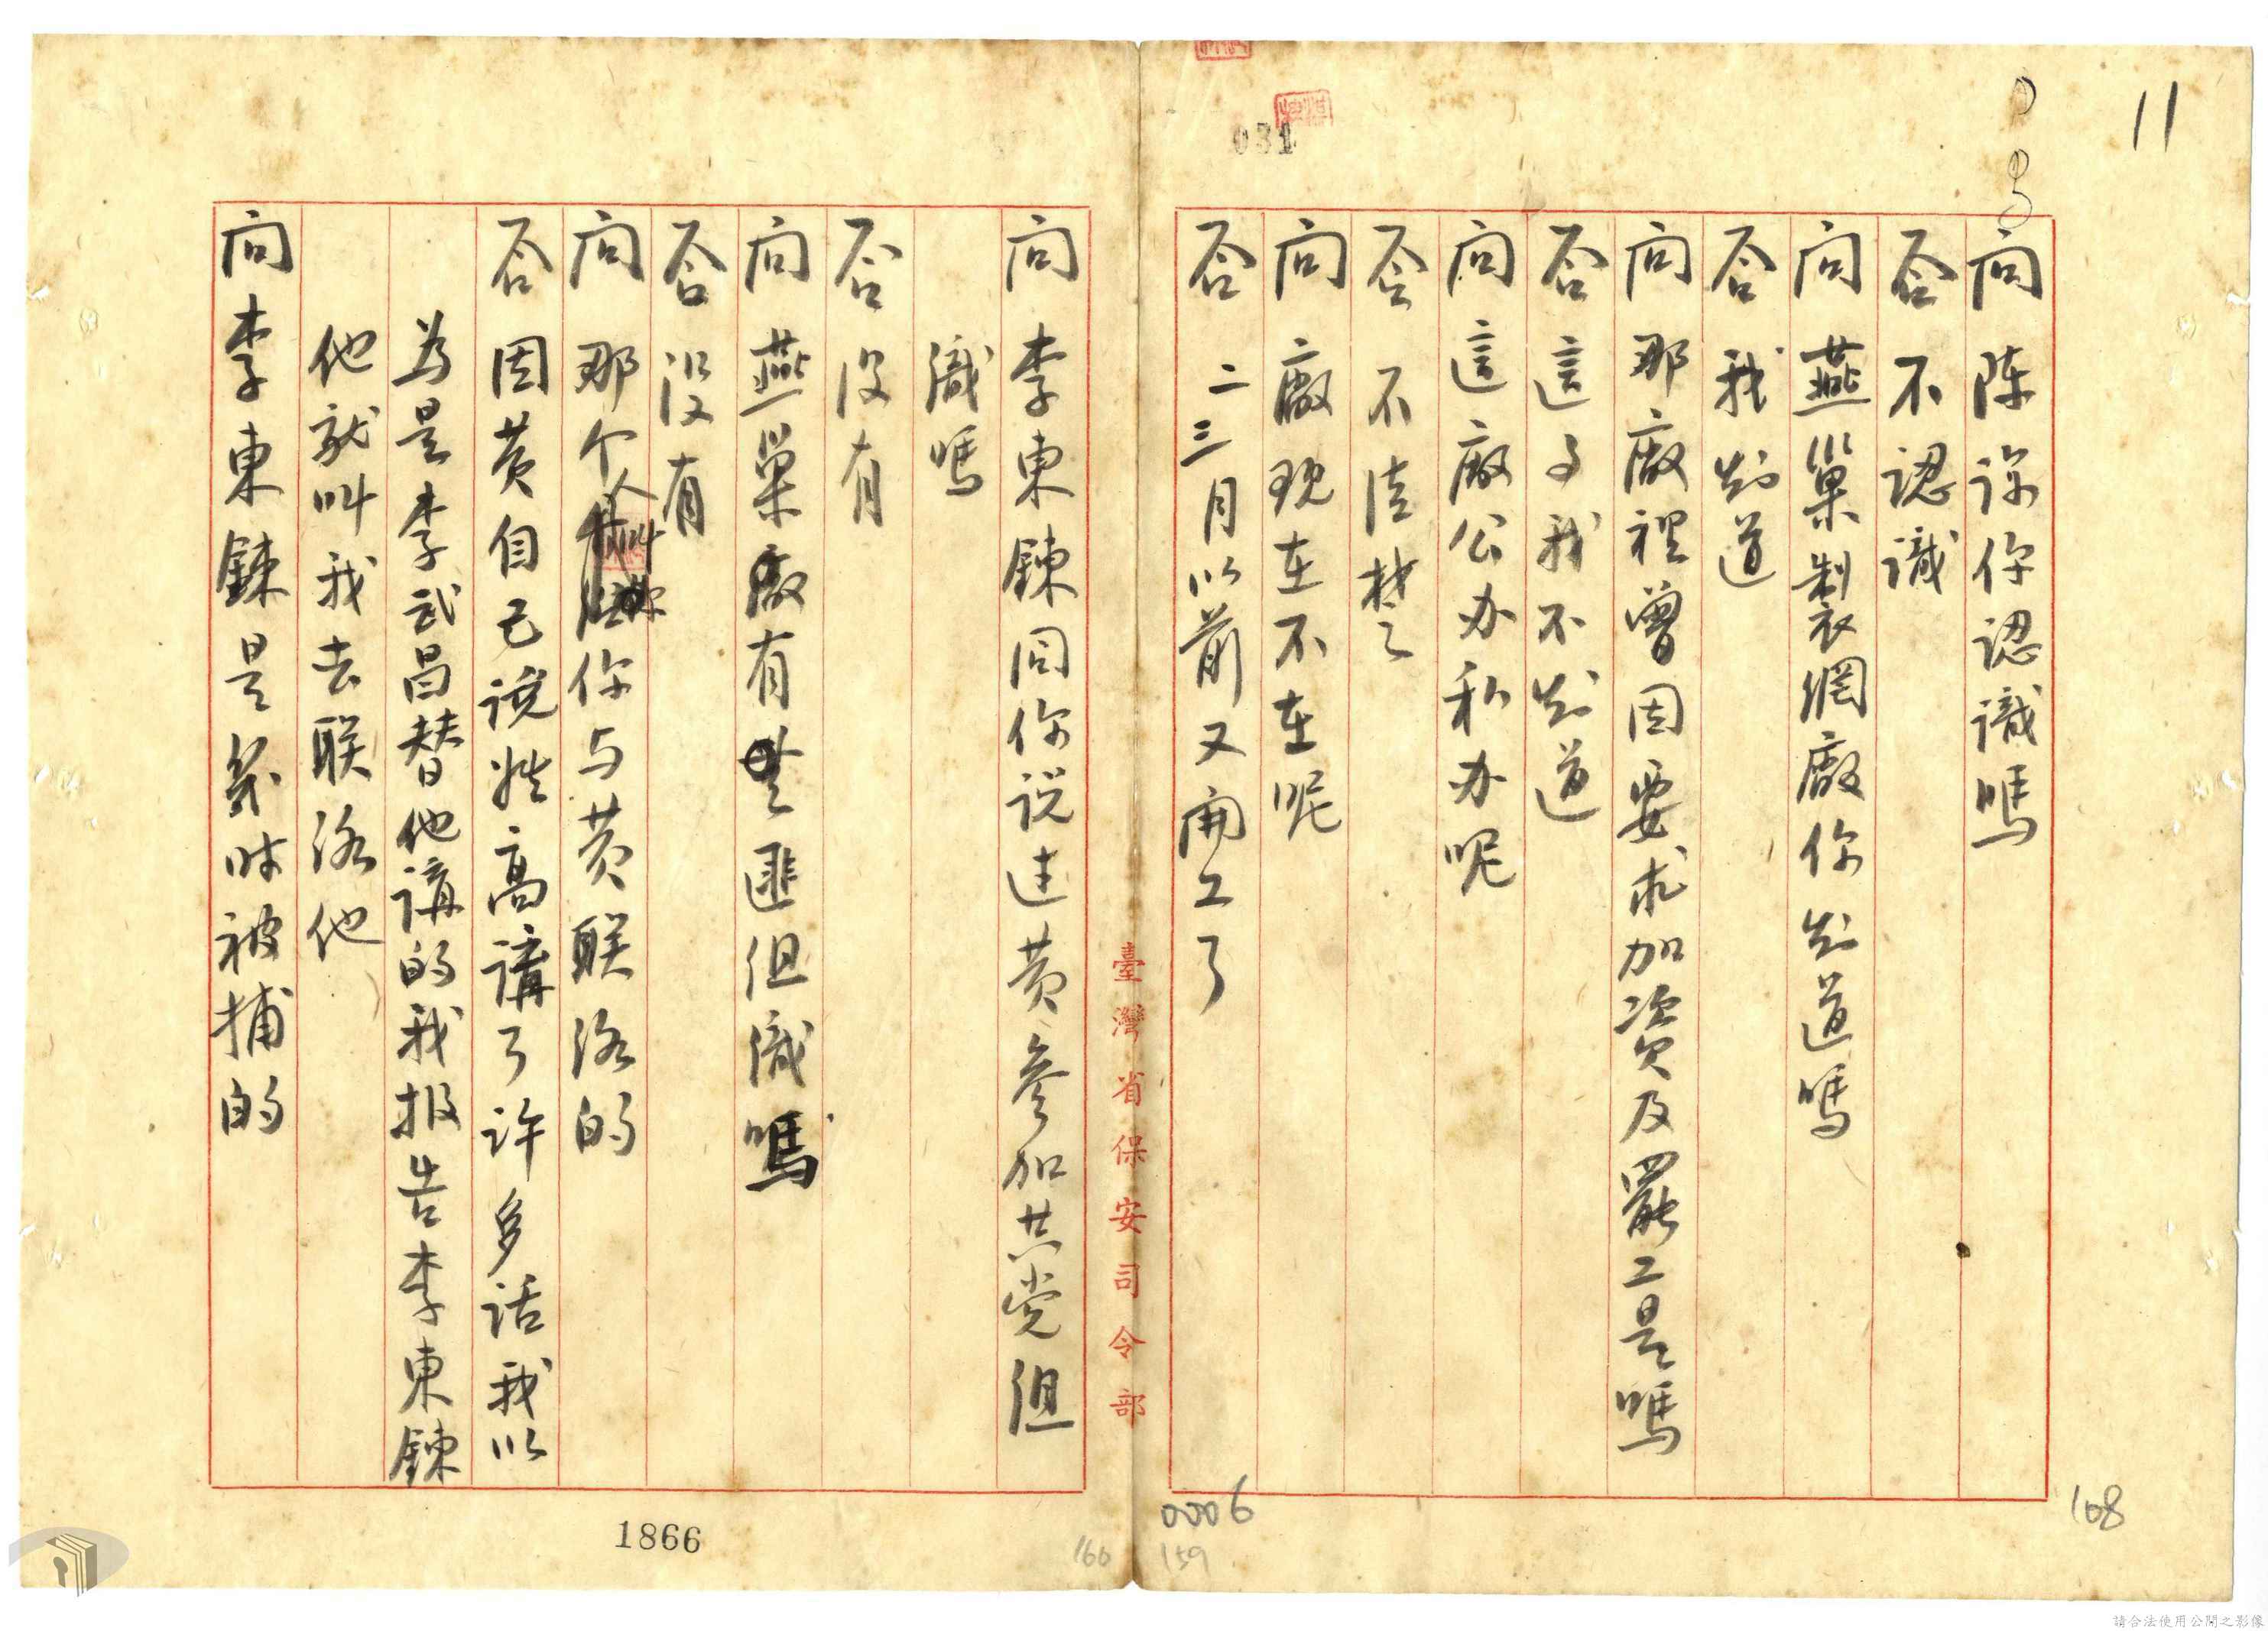 11
問 陳諒你認識嗎
答 不認識
問 燕巢製衣網廠你知道嗎
答 我知道
問 那廠裡曾因要求加資及罷工是嗎
答 這事我不知道
問 這廠公办私办呢
答 不清楚
問 廠現在不在呢
答 二三月以前又開工了
031
臺灣省保安司令部
問 李東鍊同你説过黄參加共党組
織嗎
答 没有
問 燕巢廠有無匪组織嗎
答 没有
問 那个人叫你与黄联络的
答 因黄自己說姓高講了許多話我以
為是李武昌替他講的我报告李東鍊
他就叫我去联络他
問 李東鍊是幾时被捕的
0006
159
168
1866
160
請合法使用公開之影像